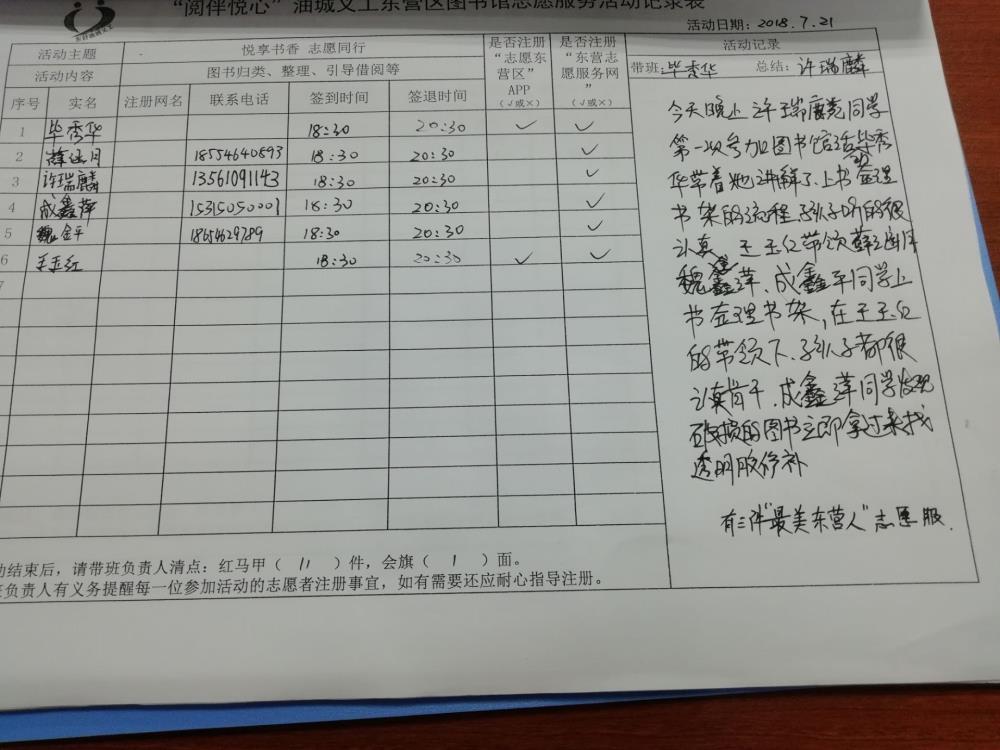 “阅伴悦心”油城义工东营区图书馆志愿服务活动记录表
活动日期：2018.7.21
活动主题 悦享书香 志愿同行
活动内容 图书归类、整理、引导借阅等
是否注册“志愿东营区”APP（√或×）
是否注册“东营志愿服务网”（√或×）
活动记录
带班：毕秀华 总结：许瑞麟
序号 实名 注册网名 联系电话 签到时间 签退时间
1 毕秀华 18:30 20:30 ✓ ✓
2 薛涵月 18554640893 18:30 20:30 ✓
3 许瑞麟 13561091143 18:30 20:30 ✓
4 成鑫萍 15315050001 18:30 20:30 ✓
5 魏金平 18654629789 18:30 20:30 ✓
6 王玉红 18:30 20:30 ✓ ✓
7
今天晚上许瑞麟同学
第一次参加图书馆活动毕秀
华带着她讲解了上书整理
书架的流程孩子听的很
认真 王玉红带领薛涵月
魏鑫萍、成鑫平同学上
书整理书架，在王玉红
的带领下、孩子都很
认真肯干、成鑫萍同学发现
破损的图书立即拿过来找
透明胶修补
有三件“最美东营人”志愿服.
动结束后，请带班负责人清点：红马甲（ 11 ）件，会旗（ 1 ）面。
班负责人有义务提醒每一位参加活动的志愿者注册事宜，如有需要还应耐心指导注册。